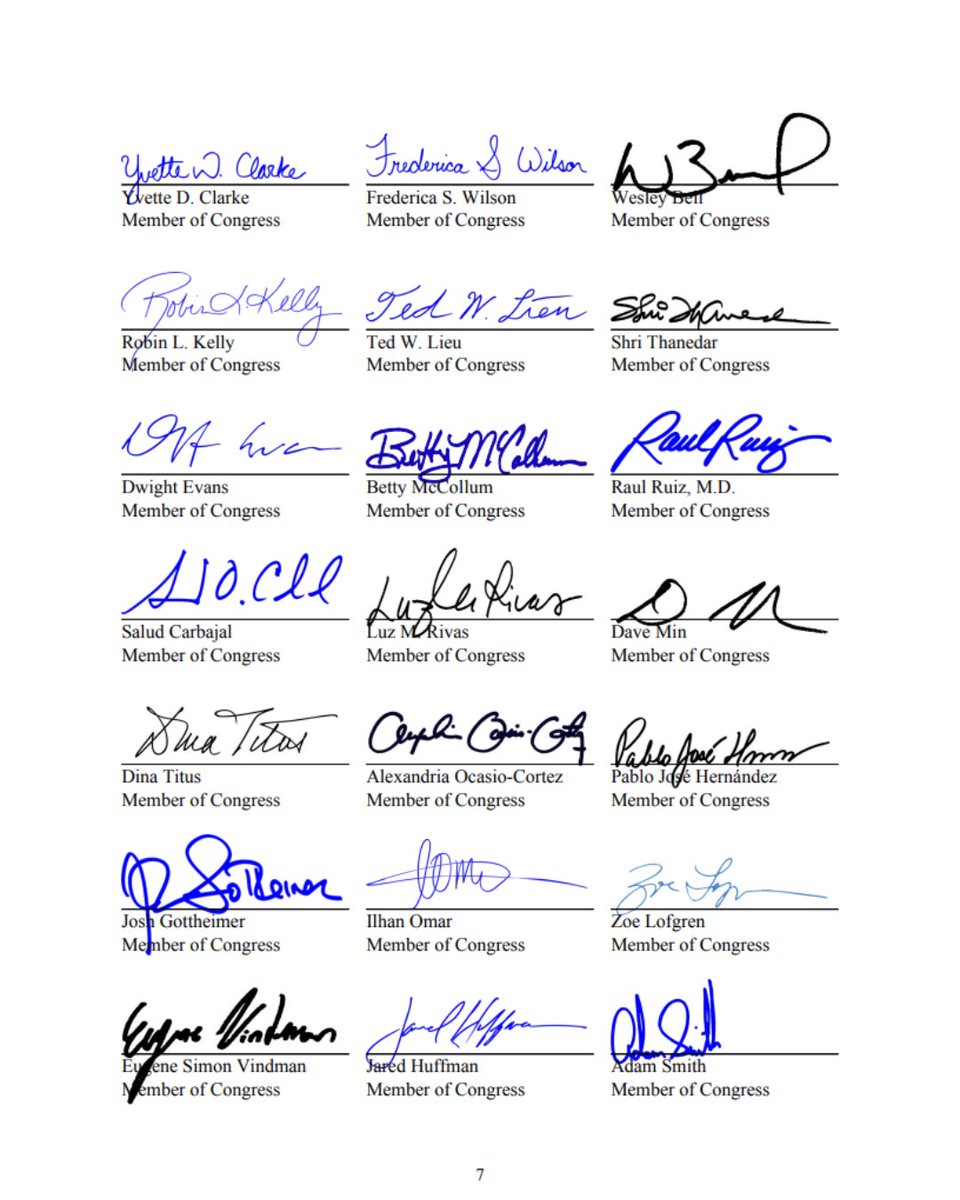 Yvette D. Clarke Frederica S Wilson
Yvette D. Clarke Frederica S. Wilson Wesley Bell
Member of Congress Member of Congress Member of Congress
Robin L. Kelly Ted W. Lieu
Robin L. Kelly Ted W. Lieu Shri Thanedar
Member of Congress Member of Congress Member of Congress
Betty McCollum Raul Ruiz
Dwight Evans Betty McCollum Raul Ruiz, M.D.
Member of Congress Member of Congress Member of Congress
Luz Rivas
Salud Carbajal Luz M. Rivas Dave Min
Member of Congress Member of Congress Member of Congress
Dina Titus Pablo José
Dina Titus Alexandria Ocasio-Cortez Pablo José Hernández
Member of Congress Member of Congress Member of Congress
Gottheimer
Josh Gottheimer Ilhan Omar Zoe Lofgren
Member of Congress Member of Congress Member of Congress
Eugene Vindman Jared Huffman Adam Smith
Eugene Simon Vindman Jared Huffman Adam Smith
Member of Congress Member of Congress Member of Congress
7